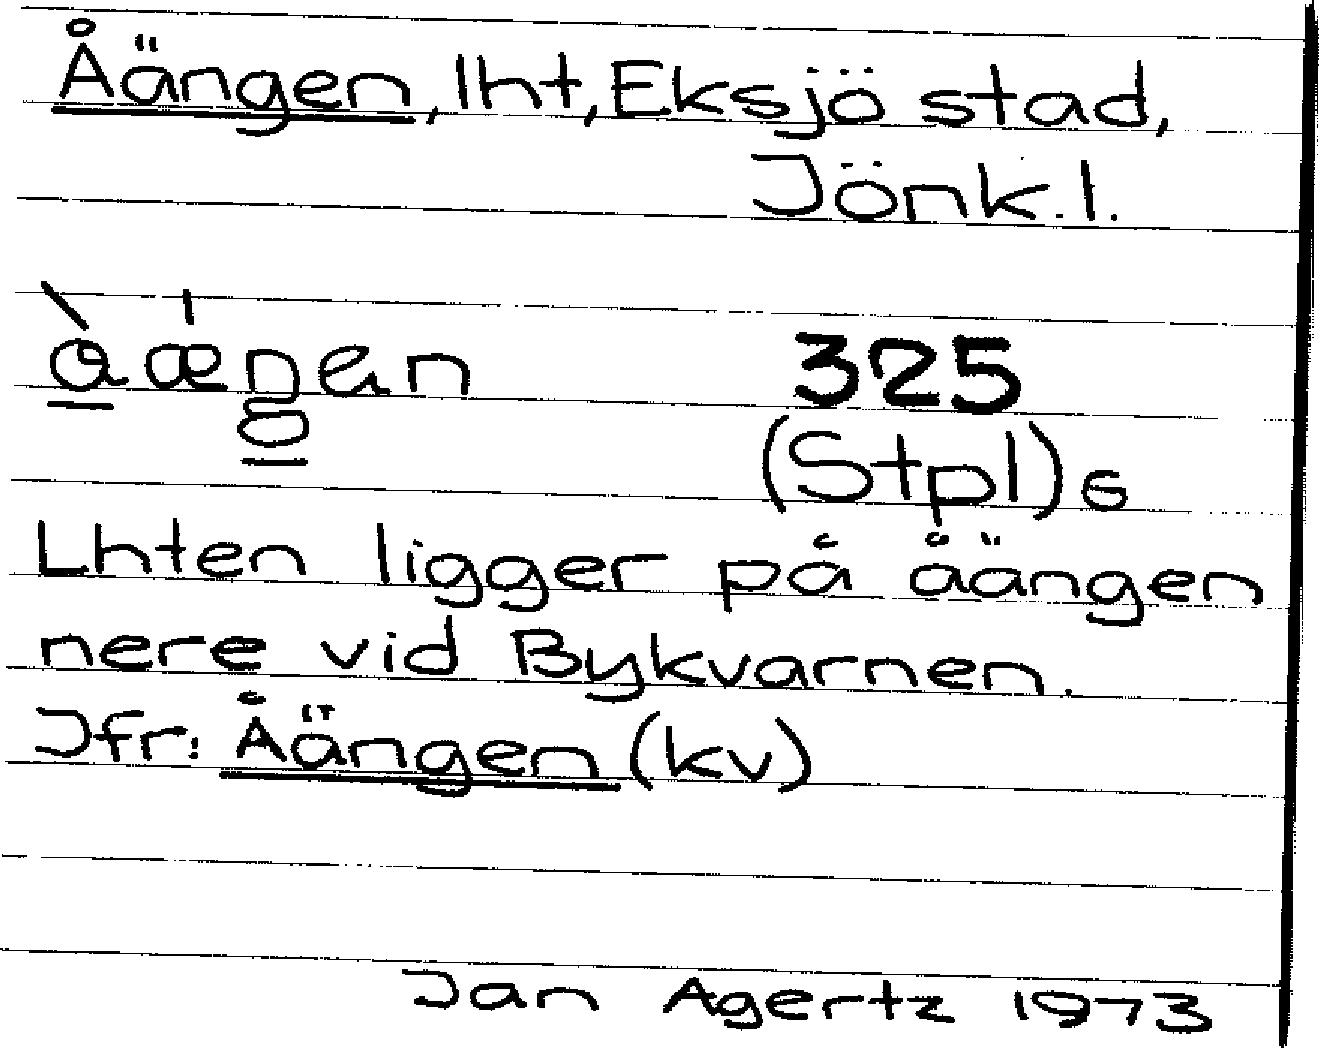 Åängen, lht, Eksjö stad,
Jönk. l.
325
(Stpl)s
Lhten ligger på åängen
nere vid Bykvarnen.
Jfr: Åängen (kv)
Jan Agertz 1973